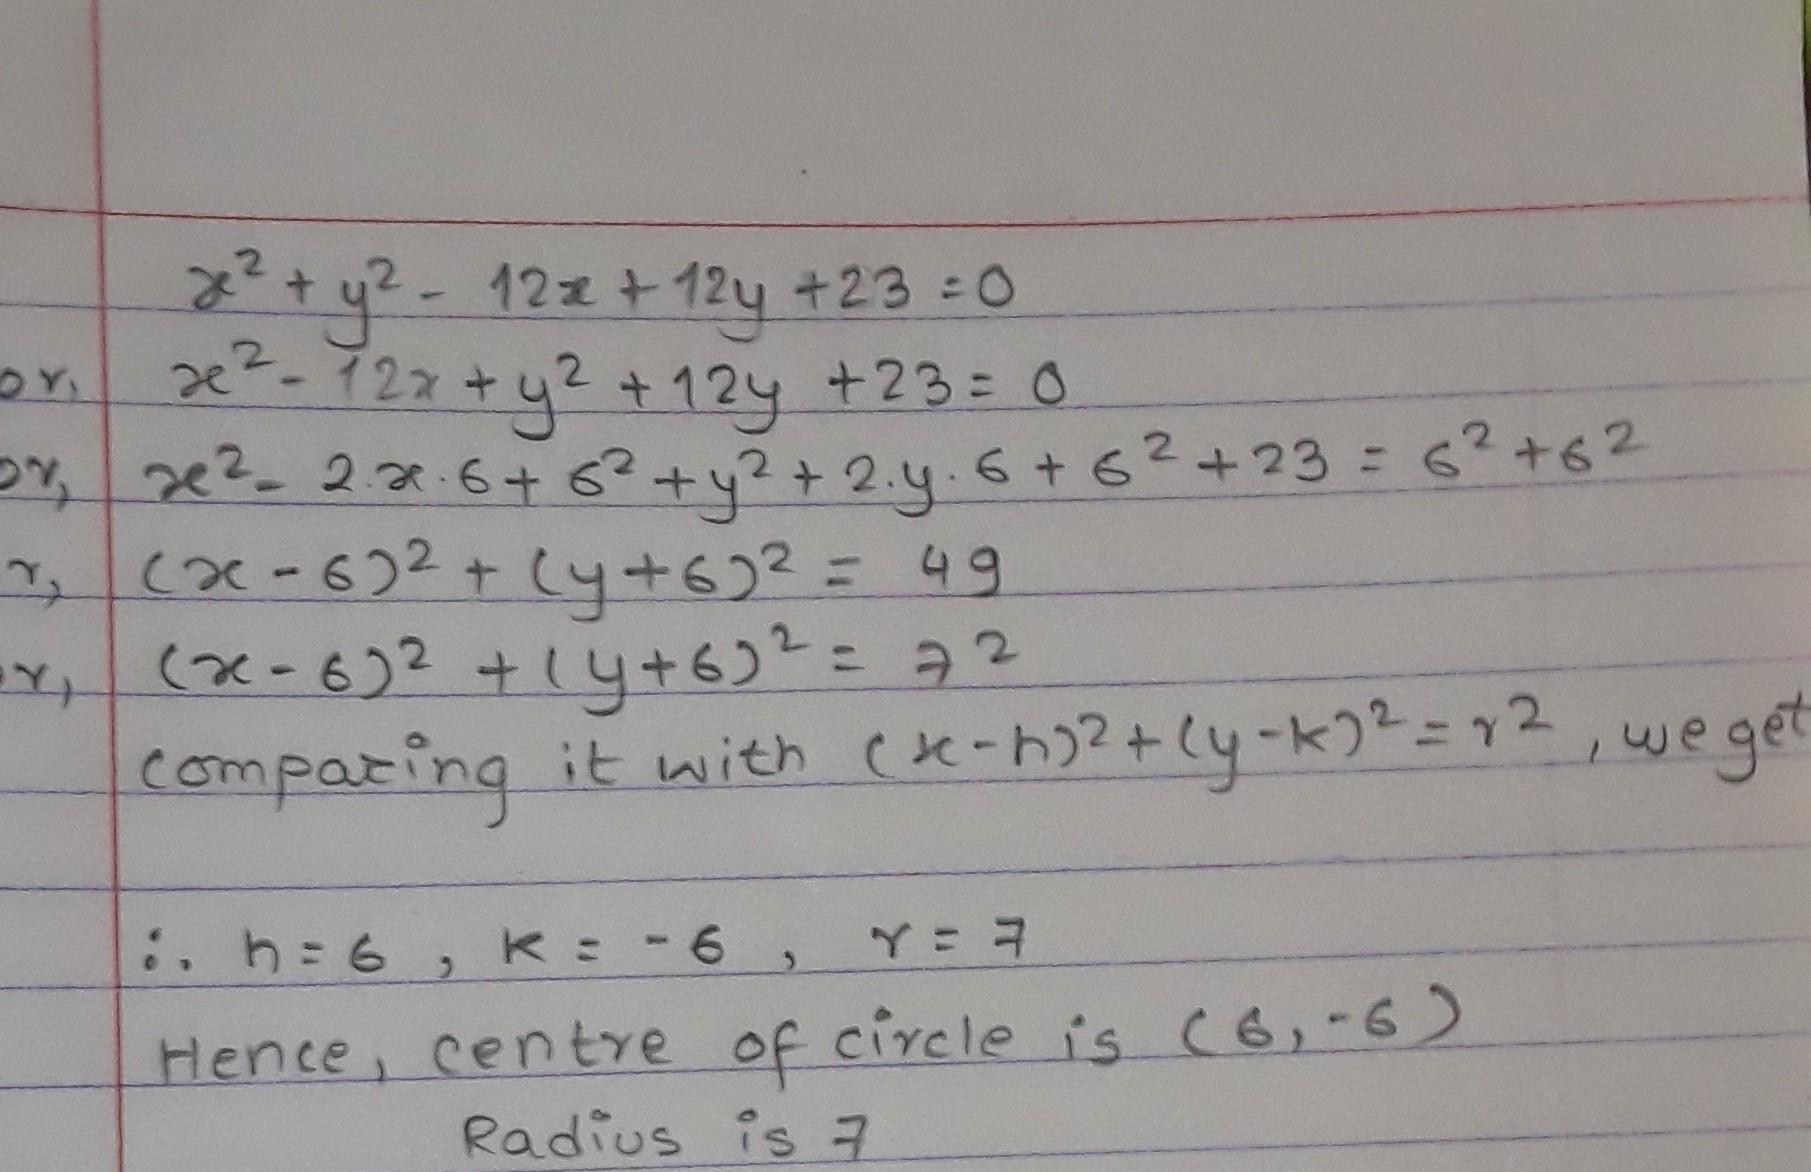 x² + y² - 12x + 12y + 23 = 0
or, x² - 12x + y² + 12y + 23 = 0
or, x² - 2.x.6 + 6² + y² + 2.y.6 + 6² + 23 = 6² + 6²
r, (x - 6)² + (y + 6)² = 49
or, (x - 6)² + (y + 6)² = 7²
comparing it with (x - h)² + (y - k)² = r², we get
∴ h = 6, k = -6, r = 7
Hence, centre of circle is (6, -6)
Radius is 7